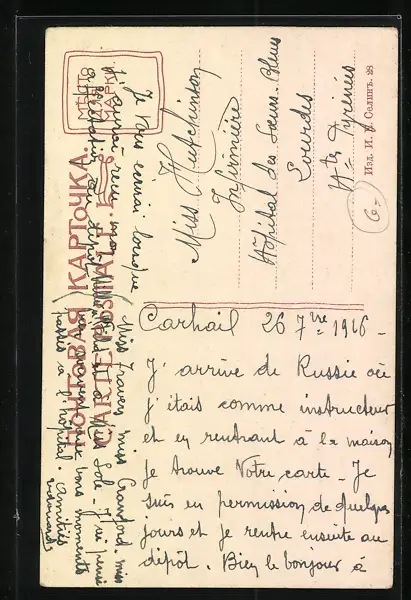 ПОЧТОВАЯ КАРТОЧКА.
CARTE POSTALE.
МѢСТО
ДЛЯ
МАРКИ
Miss Hutchinson
Infirmière
Hôpital des Sœurs. Bleues
Lourdes
Htes Pyrénées
6=
Изд. И. Селинъ. 28
Carhail 26 7bre 1916 -
J'arrive de Russie où
j'étais comme instructeur
et en rentrant à la maison
je trouve votre carte - Je
suis en permission de quelques
jours et je rentre ensuite au
dépôt. Bien le bonjour à
Miss Travers, miss Crawford. miss
et à Miss Sole - J'ai pensé
aux bons moments
passés à l'hôpital. Amitiés
Je vous écrirai lorsque
j'aurai reçu mon
affectation au dépôt